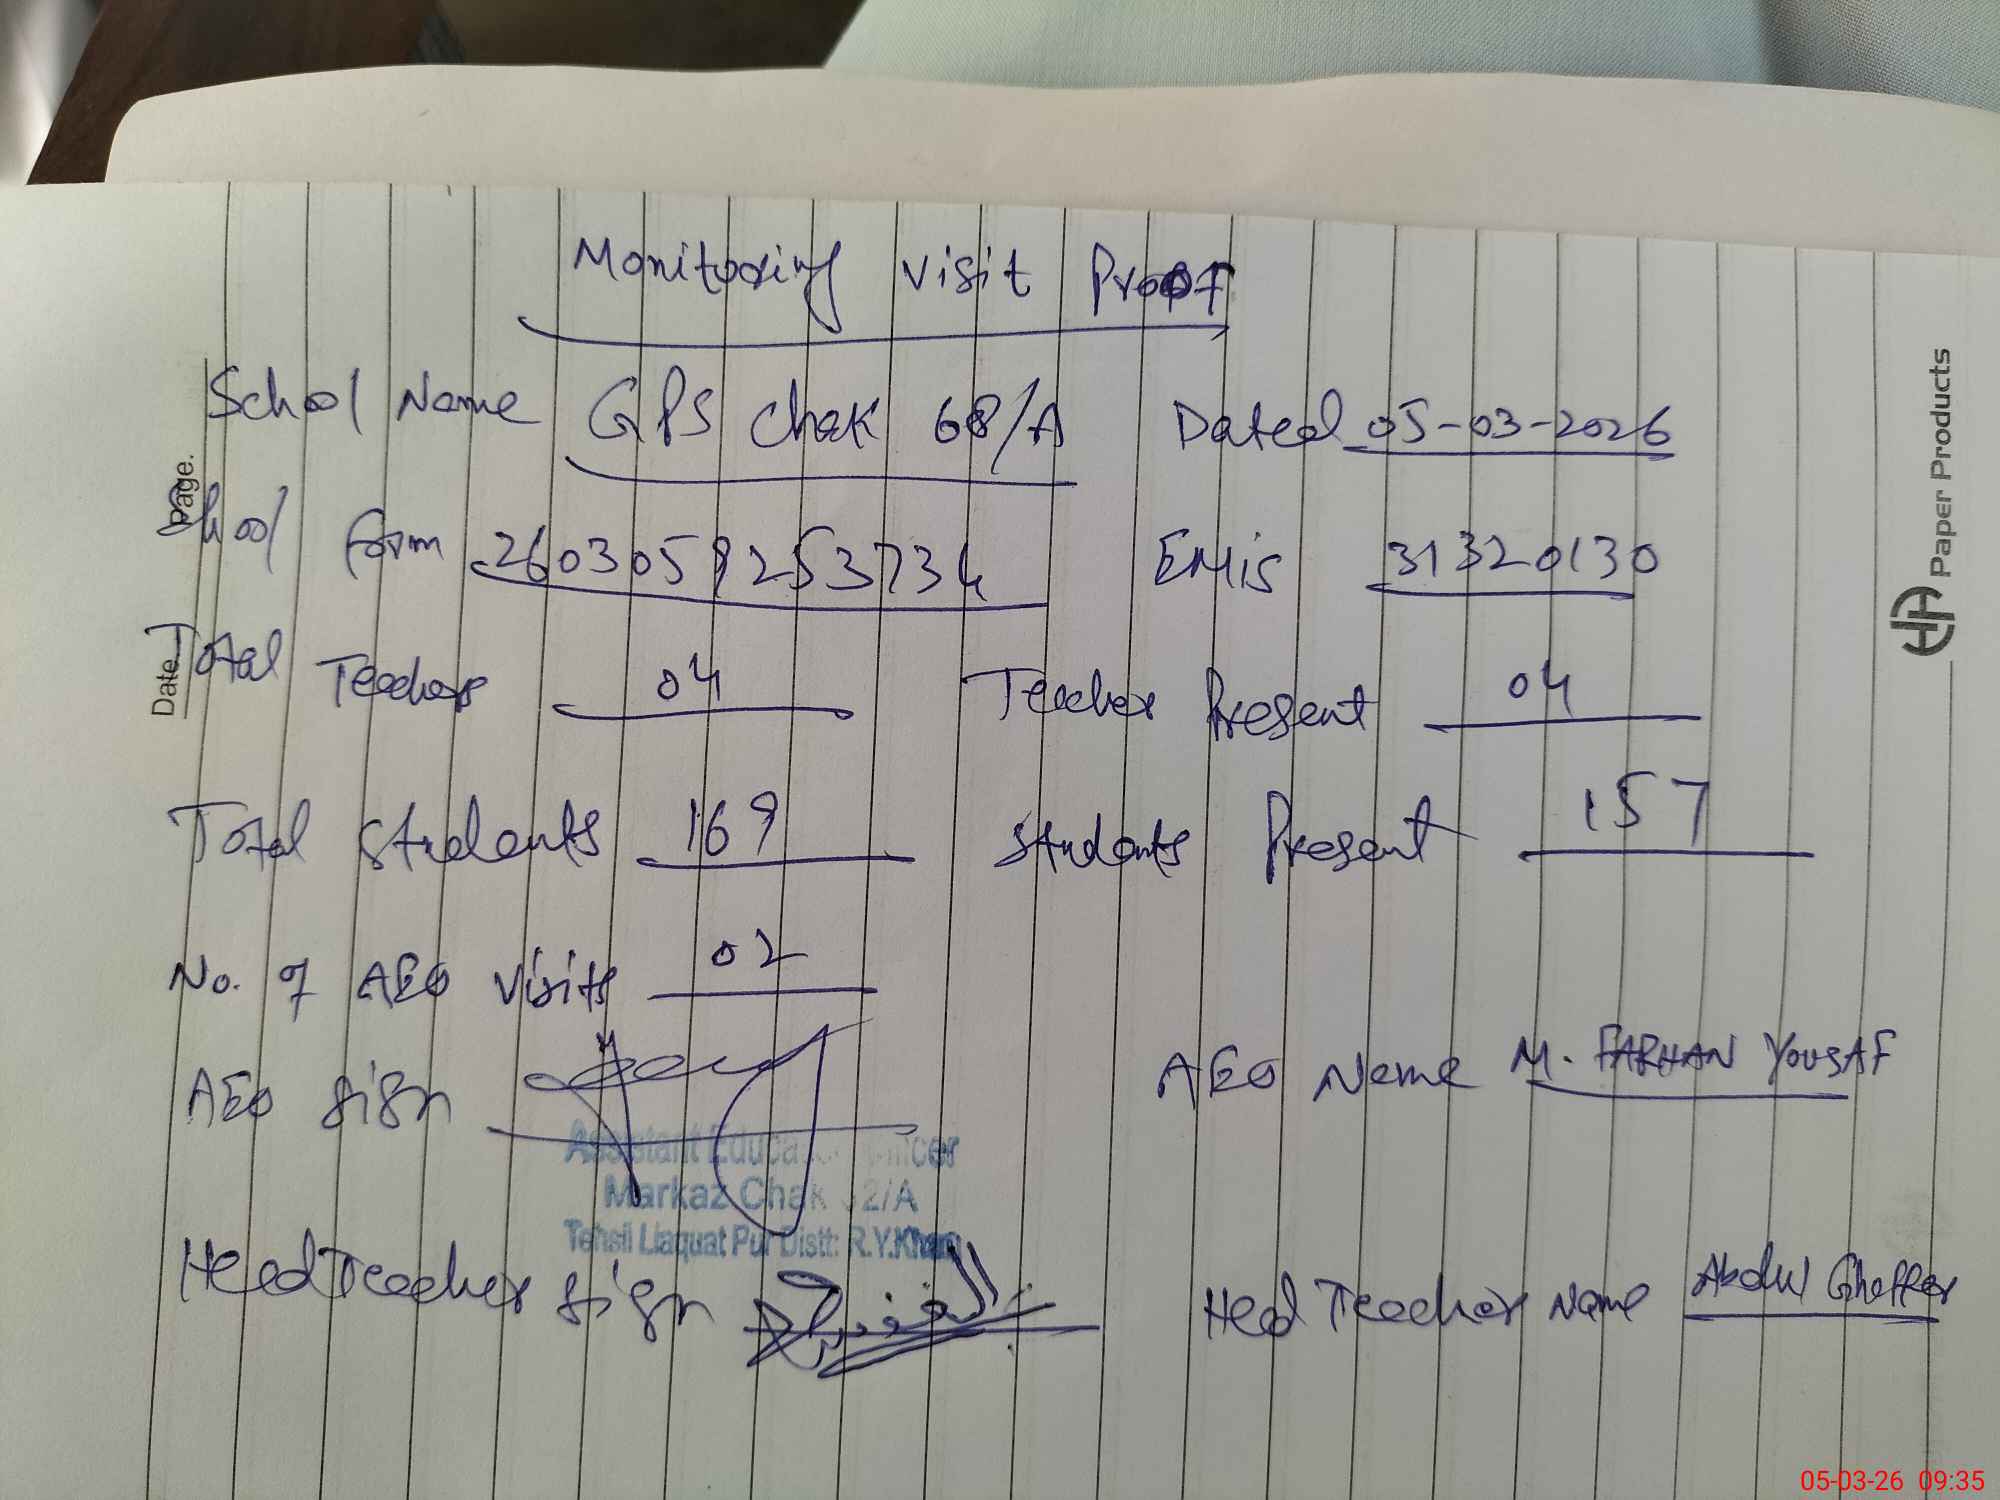 Monitoring Visit Proof
School Name GPS Chak 68/A Dated 05-03-2026
School form 2603059253734 EMIS 31320130
Total Teachers 04 Teacher Present 04
Total Students 169 Students Present 157
No. of AEO Visits 02
AEO Sign AEO Name M. FARHAN YOUSAF
Assistant Education Officer
Markaz Chak 2/A
Tehsil Liaquat Pur Distt: R.Y.Khan
Head Teacher Sign Head Teacher Name Abdul Ghaffar
Page.
Date
Paper Products
05-03-26 09:35